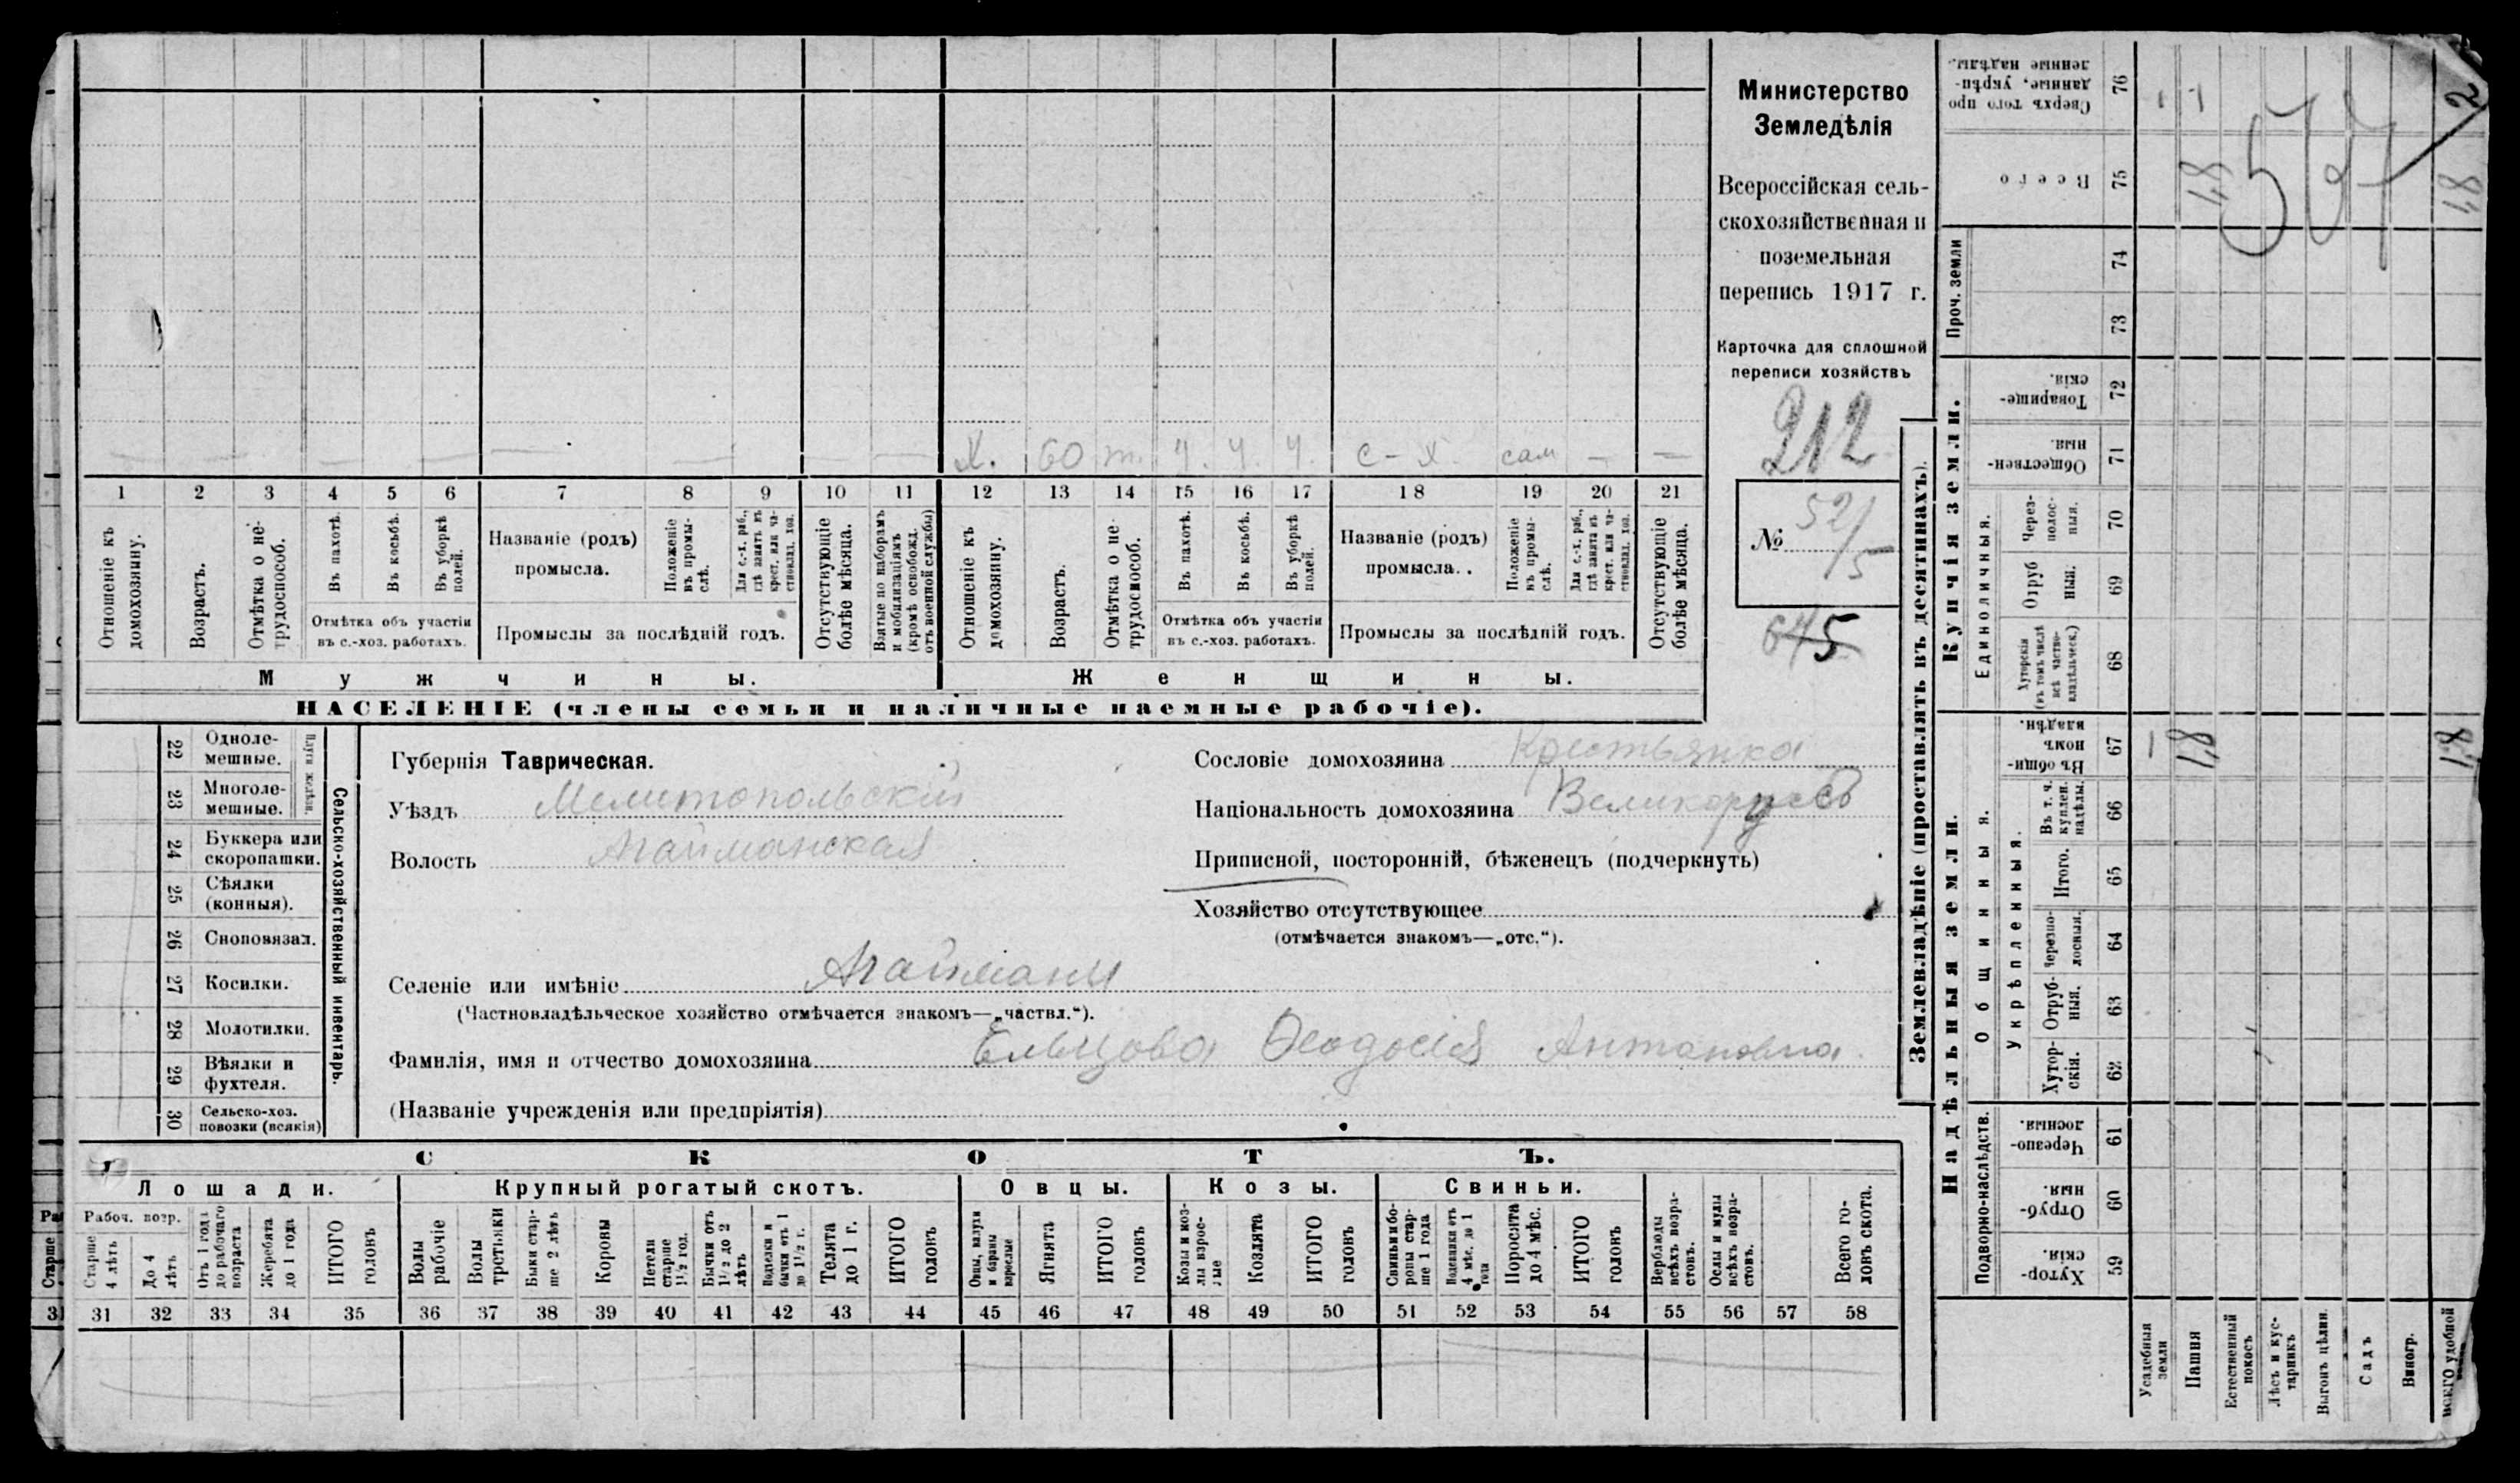 Министерство
Земледѣлія
Всероссійская сель-
скохозяйственная и
поземельная
перепись 1917 г.
Карточка для сплошной
переписи хозяйствъ
212
№ 52/5
645
Х. 60 т. ч. ч. ч. с-х. сам — —
1 2 3 4 5 6 7 8 9 10 11 12 13 14 15 16 17 18 19 20 21
Отношеніе къ домохозяину.
Возрастъ.
Отмѣтка о нетрудоспособ.
Въ пахотѣ.
Въ косьбѣ.
Въ уборкѣ полей.
Отмѣтка объ участіи
въ с.-хоз. работахъ.
Названіе (родъ)
промысла.
Положеніе въ промыслѣ.
Для с.-х. раб., гдѣ занятъ въ крест. или частновлад. хоз.
Промыслы за послѣдній годъ.
Отсутствующіе болѣе мѣсяца.
Взятые по наборамъ и мобилизаціямъ (кромѣ освобожд. отъ военной службы)
Отношеніе къ домохозяину.
Возрастъ.
Отмѣтка о нетрудоспособ.
Въ пахотѣ.
Въ косьбѣ.
Въ уборкѣ полей.
Отмѣтка объ участіи
въ с.-хоз. работахъ.
Названіе (родъ)
промысла..
Положеніе въ промыслѣ.
Для с.-х. раб., гдѣ занята въ крест. или частновлад. хоз.
Промыслы за послѣдній годъ.
Отсутствующіе болѣе мѣсяца.
Мужчины.
Женщины.
НАСЕЛЕНІЕ (члены семьи и наличные наемные рабочіе).
22 Одноле-
мешные.
23 Многоле-
мешные.
24 Буккера или
скоропашки.
25 Сѣялки
(конныя).
26 Сноповязал.
27 Косилки.
28 Молотилки.
29 Вѣялки и
фухтеля.
30 Сельско-хоз.
повозки (всякія)
Сельско-хозяйственный инвентарь.
Губернія Таврическая.
Уѣздъ Мелитопольскій
Волость Агайманская
Сословіе домохозяина Крестьянка
Національность домохозяина Великоруссъ
Приписной, посторонній, бѣженецъ (подчеркнуть)
Хозяйство отсутствующее
(отмѣчается знакомъ—„отс.“).
Селеніе или имѣніе Агайманы
(Частновладѣльческое хозяйство отмѣчается знакомъ—„частвл.“).
Фамилія, имя и отчество домохозяина Ельцова Ѳеодосія Антоновна.
(Названіе учрежденія или предпріятія)
СКОТЪ.
Лошади.
Крупный рогатый скотъ.
Овцы.
Козы.
Свиньи.
Рабоч. возр.
Старше 4 лѣтъ
До 4 лѣтъ
Отъ 1 года до рабочаго возраста
Жеребята до 1 года
ИТОГО головъ
Волы рабочіе
Волы третьяки
Быки старше 2 лѣтъ
Коровы
Нетели старше 1½ год.
Бычки отъ 1½ до 2 лѣтъ
Водтелки и бычки отъ 1 до 1½ г.
Телята до 1 г.
ИТОГО головъ
Овцы, валухи и бараны взрослые
Ягнята
ИТОГО головъ
Козы и козлы взрослые
Козлята
ИТОГО головъ
Свиньи и боровы старше 1 года
Подсвинки отъ 4 мѣс. до 1 года
Поросята до 4 мѣс.
ИТОГО головъ
Верблюды всѣхъ возрастовъ.
Ослы и мулы всѣхъ возрастовъ.
Всего головъ скота.
31 32 33 34 35 36 37 38 39 40 41 42 43 44 45 46 47 48 49 50 51 52 53 54 55 56 57 58
Землевладѣніе (проставлять въ десятинахъ).
Купчія земли.
Надѣльныя земли.
Проч. земли
Единоличныя.
Общинныя.
Укрѣпленныя.
Подворно-наслѣдств.
Сверхъ того проданные, укрѣпленные надѣлы. 76
Всего 75 1,8 1,8
74
73
Товарищескія. 72
Общественныя. 71
Черезполосныя. 70
Отрубныя. 69
Хуторскія (въ томъ числѣ всѣ частновладѣльческ.) 68
Въ общинномъ владѣн. 67 1,8 1,8
Въ т. ч. куплен. надѣлы. 66
Итого. 65
Черезполосныя. 64
Отрубныя. 63
Хуторскія. 62
Черезполосныя. 61
Отрубныя. 60
Хуторскія. 59
Усадебныя земли
Пашня
Естественный покосъ
Лѣсъ и кустарникъ
Выгонъ цѣлин.
Садъ
Виногр.
ВСЕГО удобной
2